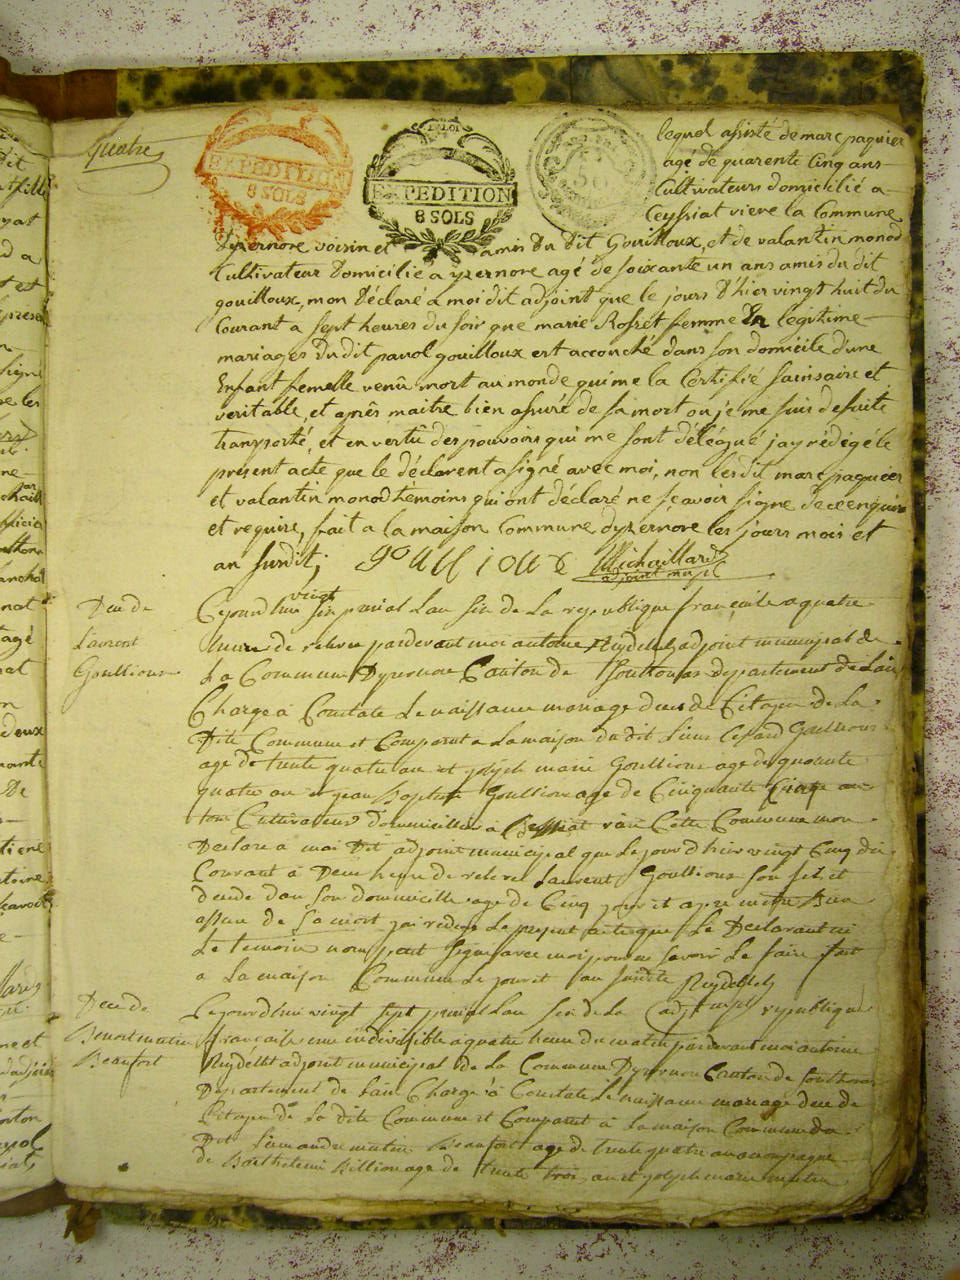 quatre
LA LOI
EXPEDITION
8 SOLS
EXPEDITION
8 SOLS
50
lequel assisté de marc paquier
agé de quarente Cinq ans
Cultivateurs domicilié a
Ceyssiat viere la Commune
Dyzernore voisin et amis Du Dit Gouilloux, et de valantin monod
Cultivateur Domicilié a yzernore agé de soixante un ans amis du dit
gouilloux, mon Déclaré a moi dit adjoint que le jours D'hier vingt huit du
Courant a sept heures du soir que marie Rosset femme En legitime
mariages du dit paul gouilloux est accouché dans son domicile d'une
Enfant femelle venû mort au monde qui me la Certifié sainsaire et
veritable, et après maitre bien assuré de sa mort ou je me suis de suite
transporté, et en vertû des pouvoirs qui me sont délégué jay rédigé le
present acte que le déclarent a signé avec moi, non les dit marc paquier
et valantin monod témoins qui ont déclaré ne scavoir signé de ce enquis
et require, fait a la maison Commune dyzernore les jours mois et
an susdit, gouilloux Michaillard
adjoint mupl
Deu de
Laurent
Goullioux
vingt
Cejourdhui six prerial Lan six de La republique françoise a quatre
heure de releve pardevant moi antoine Reydellet adjoint municipal de
La Commune Dyzernore Canton de Sonthonas departement de Lain
Chargé a Constate Le naissance mariage deces de Citoyen de La
Dite Commune et Comparut a La maison du dit Lieu Cesard Goullioux
age de trente quatre an et joseph marie Goullioux age de quarante
quatre an et jean Baptiste Goullioux age de Cinquante Cinq an
tous Cultivateurs domicillies à Ceyssiat rière Cette Commune mon
Declare a moi Dit adjoint municipal que Le jour dhier vingt Cinq du
Courant a Deux heure de releve Laurent Goullioux son fils et
decede dan son domicille age de Cinq jour et apre metre Bien
assure de sa mort jai redige Le present acte que Le Declarant ni
Le temoin nompoit signe avec moi pour ne savoir Le faire fait
a La maison Commune Le jour et an susdite Reydellet
adjt mupl
Dece de
Benoit matieu
Beaufort
Cejourdhui vingt sept prerial Lan six de La republique
francaise une indivisible a quatre heure du matin pardevant moi antoine
Reydellet adjoint municipal de La Commune Dyzernore Canton de Sonthonas
Departement de Lain Chargé à Constate Le naissance mariage dece de
Citoyen de La dite Commune et Comparut à La maison Commune du
Dit Lieu andre matieu Beaufort age de trente quatre an acompagne
de Barthelemi Billion age de trente trois an et joseph marie matieu